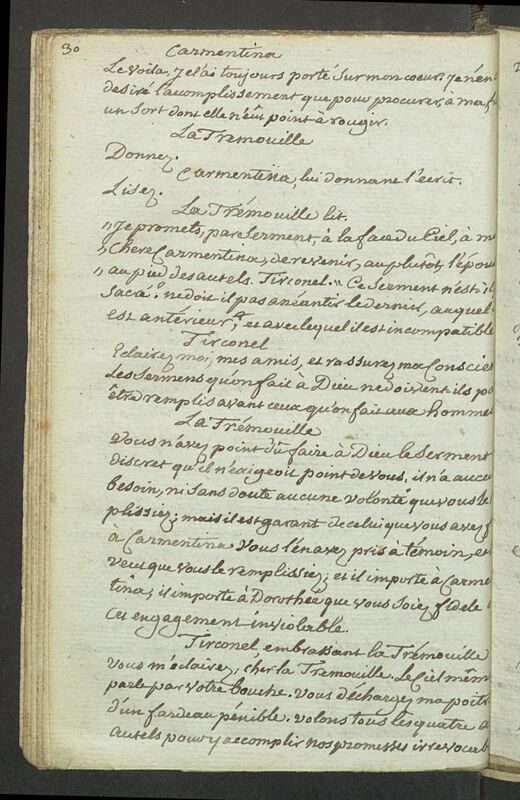 30
Carmentina
Le voila, je l'ai toujours porté sur mon coeur. Je n'en
desiré l'acomplissement que pour procurer, à ma f
un sort dont elle n'eût point à rougir.
La Trémouille
Donnez.
Carmentina, lui donnant l'écrit.
Lisez.
La Trémouille lit.
„ Je promets, par serment, à la face du Ciel, à m
„ chere Carmentina, de revenir, au plutôt, l'épou
„ au pied des autels. Tirconel. „ Ce serment n'est-il
sacré? ne doit-il pas anéantir le dernier, auquel
est antérieur, et avec lequel il est incompatible
Tirconel
Eclairez moi, mes amis, et rassurez ma conscien
Les sermens qu'on fait à Dieu ne doivent ils pa
être remplis avant ceux qu'on fait aux homme
La Trémouille
Vous n'avez point dû faire à Dieu le serment
discret qu'il n'exigeoit point de vous, il n'a aucu
besoin, ni sans doute aucune volonté que vous le
plissiez; mais il est garant de celui que vous avez f
à Carmentina. Vous l'en avez pris à témoin, et
veut que vous le remplissiez; et il importe à Carme
tina, il importe à Dorothée que vous soiez fidele
cet engagement inviolable.
Tirconel, embrassant la Trémouille
Vous m'éclairez, cher la Tremouille. Le ciel mêm
parle par votre bouche. Vous déchargez ma poitr
d'un fardeau pénible. volons tous les quatre a
autels pour y accomplir nos promesses irrevocab